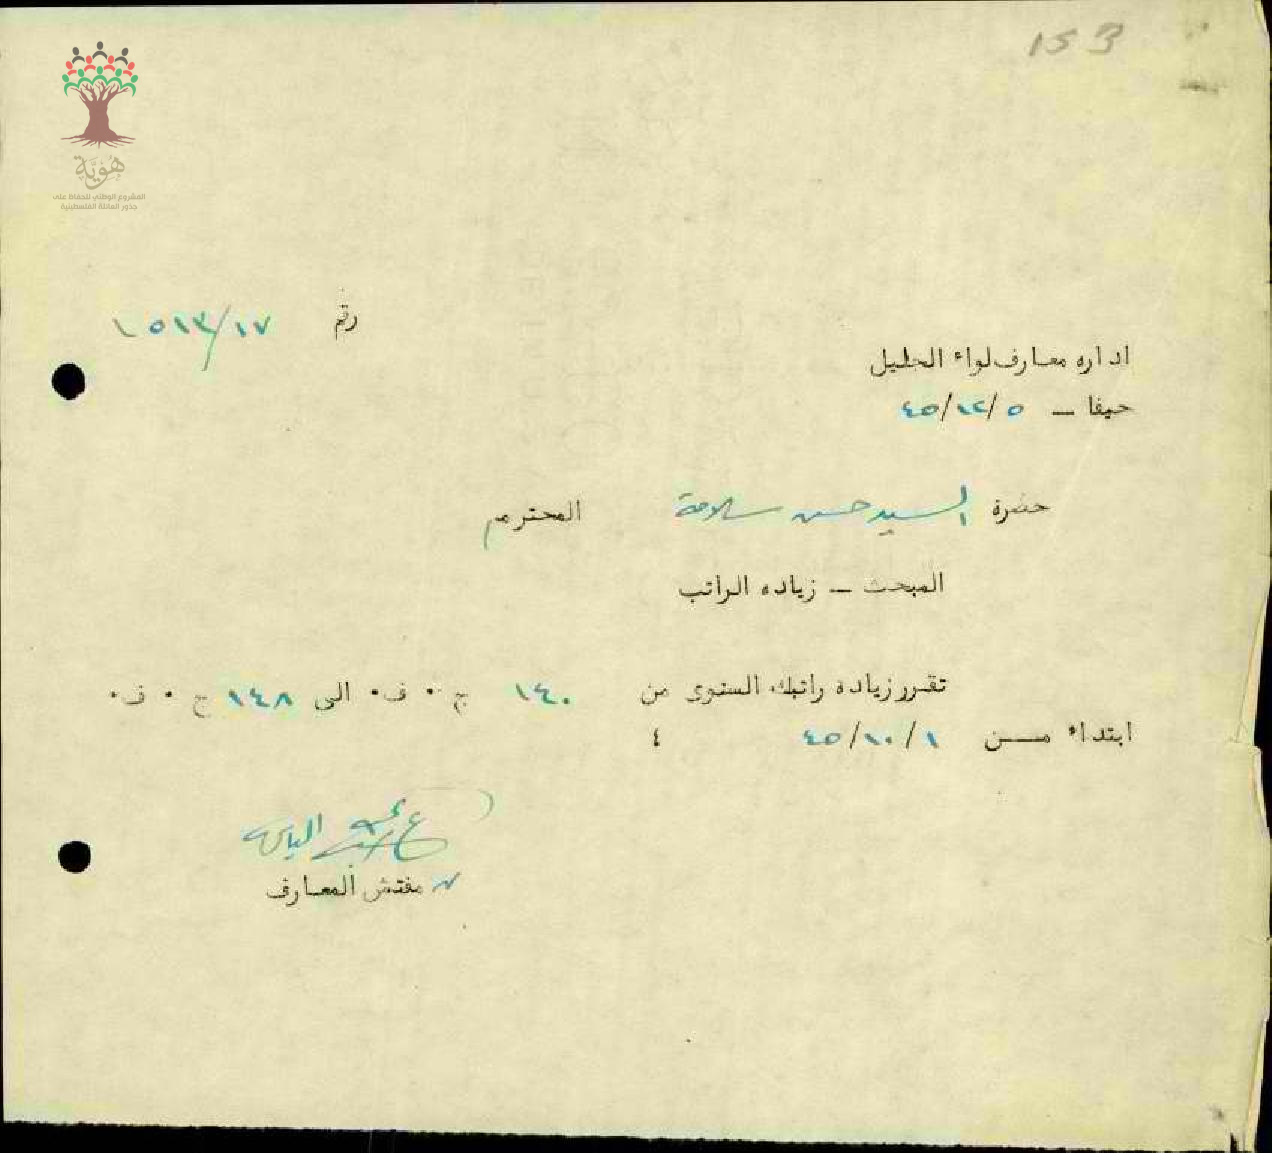 153
هُوِيَّة
المشروع الوطني للحفاظ على
جذور العائلة الفلسطينية
رقم ١٧/١٥١٣
اداره معارف لواء الجليل
حيفا — ٤٥/١٢/٥
حضرة السيد حسن سلامة المحترم
المبحث — زياده الراتب
تقرر زيادة راتبك السنوى من ١٤٠ ج ٠ ف ٠ الى ١٤٨ ج ٠ ف ٠
ابتداء مــن ٤٥/١٠/١ ٤
الياس
مفتش المعارف